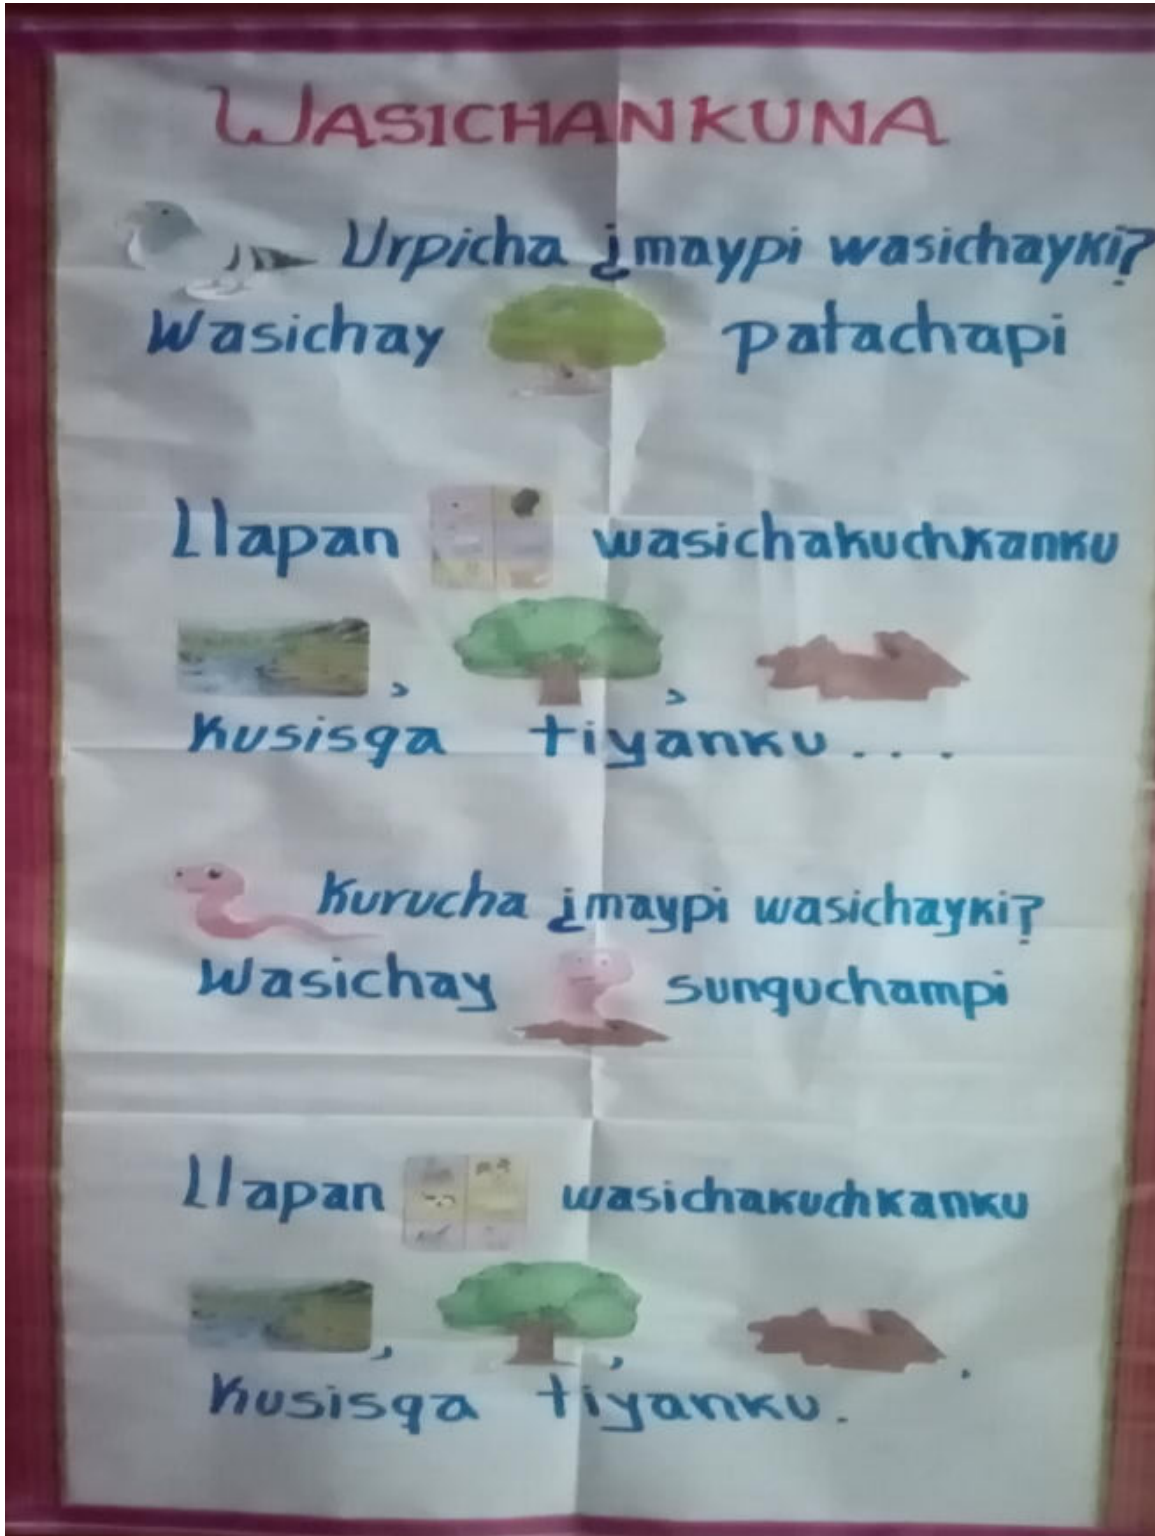 WASICHANKUNA
Urpicha ¿maypi wasichayki?
Wasichay patachapi
Llapan wasichakuchkanku
, ,
Kusisqa tiyanku...
Kurucha ¿maypi wasichayki?
Wasichay sunquchampi
Llapan wasichakuchkanku
, , .
Kusisqa tiyanku.